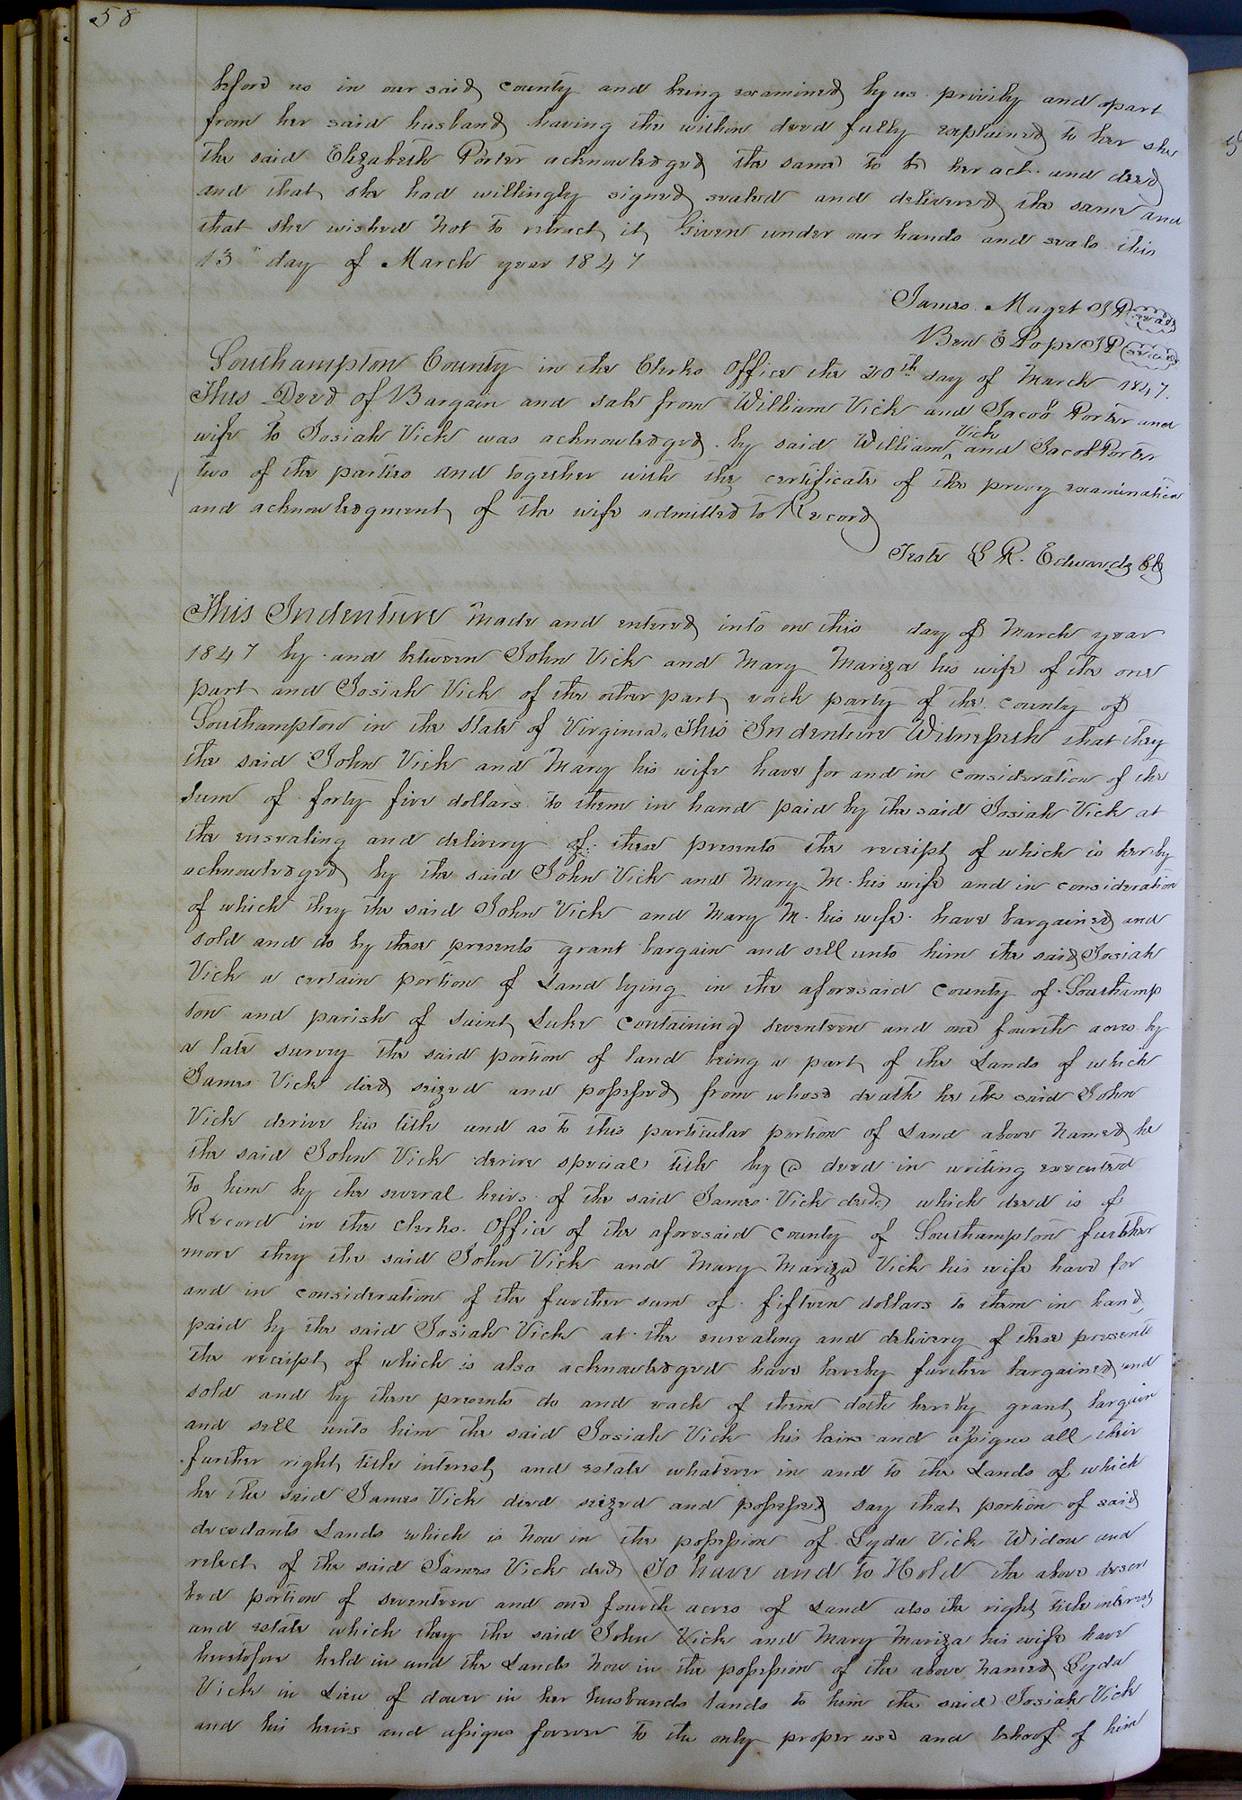 58
before us in our said county and being examined by us privily and apart
from her said husband having the within deed fully explained to her she
the said Elizabeth Porter acknowledged the same to be her act and deed
and that she had willingly signed sealed and delivered the same and
that she wished not to retract it, Given under our hands and seals this
13th day of March year 1847
James Maget JP seal
Ben E Pope JP seal
Southampton County in the Clerks Office the 20th day of March 1847.
This Deed of Bargain and sale from William Vick and Jacob Porter and
wife to Josiah Vick was acknowledged by said William Vick and Jacob Porter
two of the parties and together with the certificate of the privy examination
and acknowledgment of the wife admitted to Record
Teste L R. Edwards Clk
This Indenture made and entered into on this day of March year
1847 by and between John Vick and Mary Mariza his wife of the one
part and Josiah Vick of the other part, each party of the county of
Southampton in the State of Virginia, This Indenture Witnesseth that they
the said John Vick and Mary his wife have for and in consideration of the
sum of forty five dollars to them in hand paid by the said Josiah Vick at
the ensealing and delivery of these presents the receipt of which is hereby
acknowledged by the said John Vick and Mary M. his wife and in consideration
of which they the said John Vick and Mary M. his wife have bargained and
sold and do by these presents grant bargain and sell unto him the said Josiah
Vick a certain portion of Land lying in the aforesaid County of Southamp
ton and parish of Saint Luke containing seventeen and one fourth acres by
a late survey the said portion of land being a part of the Lands of which
James Vick died seized and possessed from whose death he the said John
Vick derive his title and as to this particular portion of Land above named he
the said John Vick derive special title by a deed in writing executed
to him by the several heirs of the said James Vick decd, which deed is of
Record in the clerks Office of the aforesaid county of Southampton further
more they the said John Vick and Mary Mariza Vick his wife have for
and in consideration of the further sum of fifteen dollars to them in hand
paid by the said Josiah Vick at the ensealing and delivery of these presents
the receipt of which is also acknowledged have hereby further bargained and
sold and by these presents do and each of them doth hereby grant, bargain
and sell unto him the said Josiah Vick his heirs and assigns all their
further right, title interest, and estate whatever in and to the Lands of which
he the said James Vick died seized and possessed say that portion of said
decedants Lands which is now in the possession of Lyda Vick Widow and
relect of the said James Vick decd To have and to Hold the above descri
bed portion of seventeen and one fourth acres of Land also the right title interest
and estate which they the said John Vick and Mary Mariza his wife have
heretofore held in and the Lands now in the possession of the above named Lyda
Vick in Lieu of dower in her husbands lands to him the said Josiah Vick
and his heirs and assigns forever to the only proper use and behoof of him